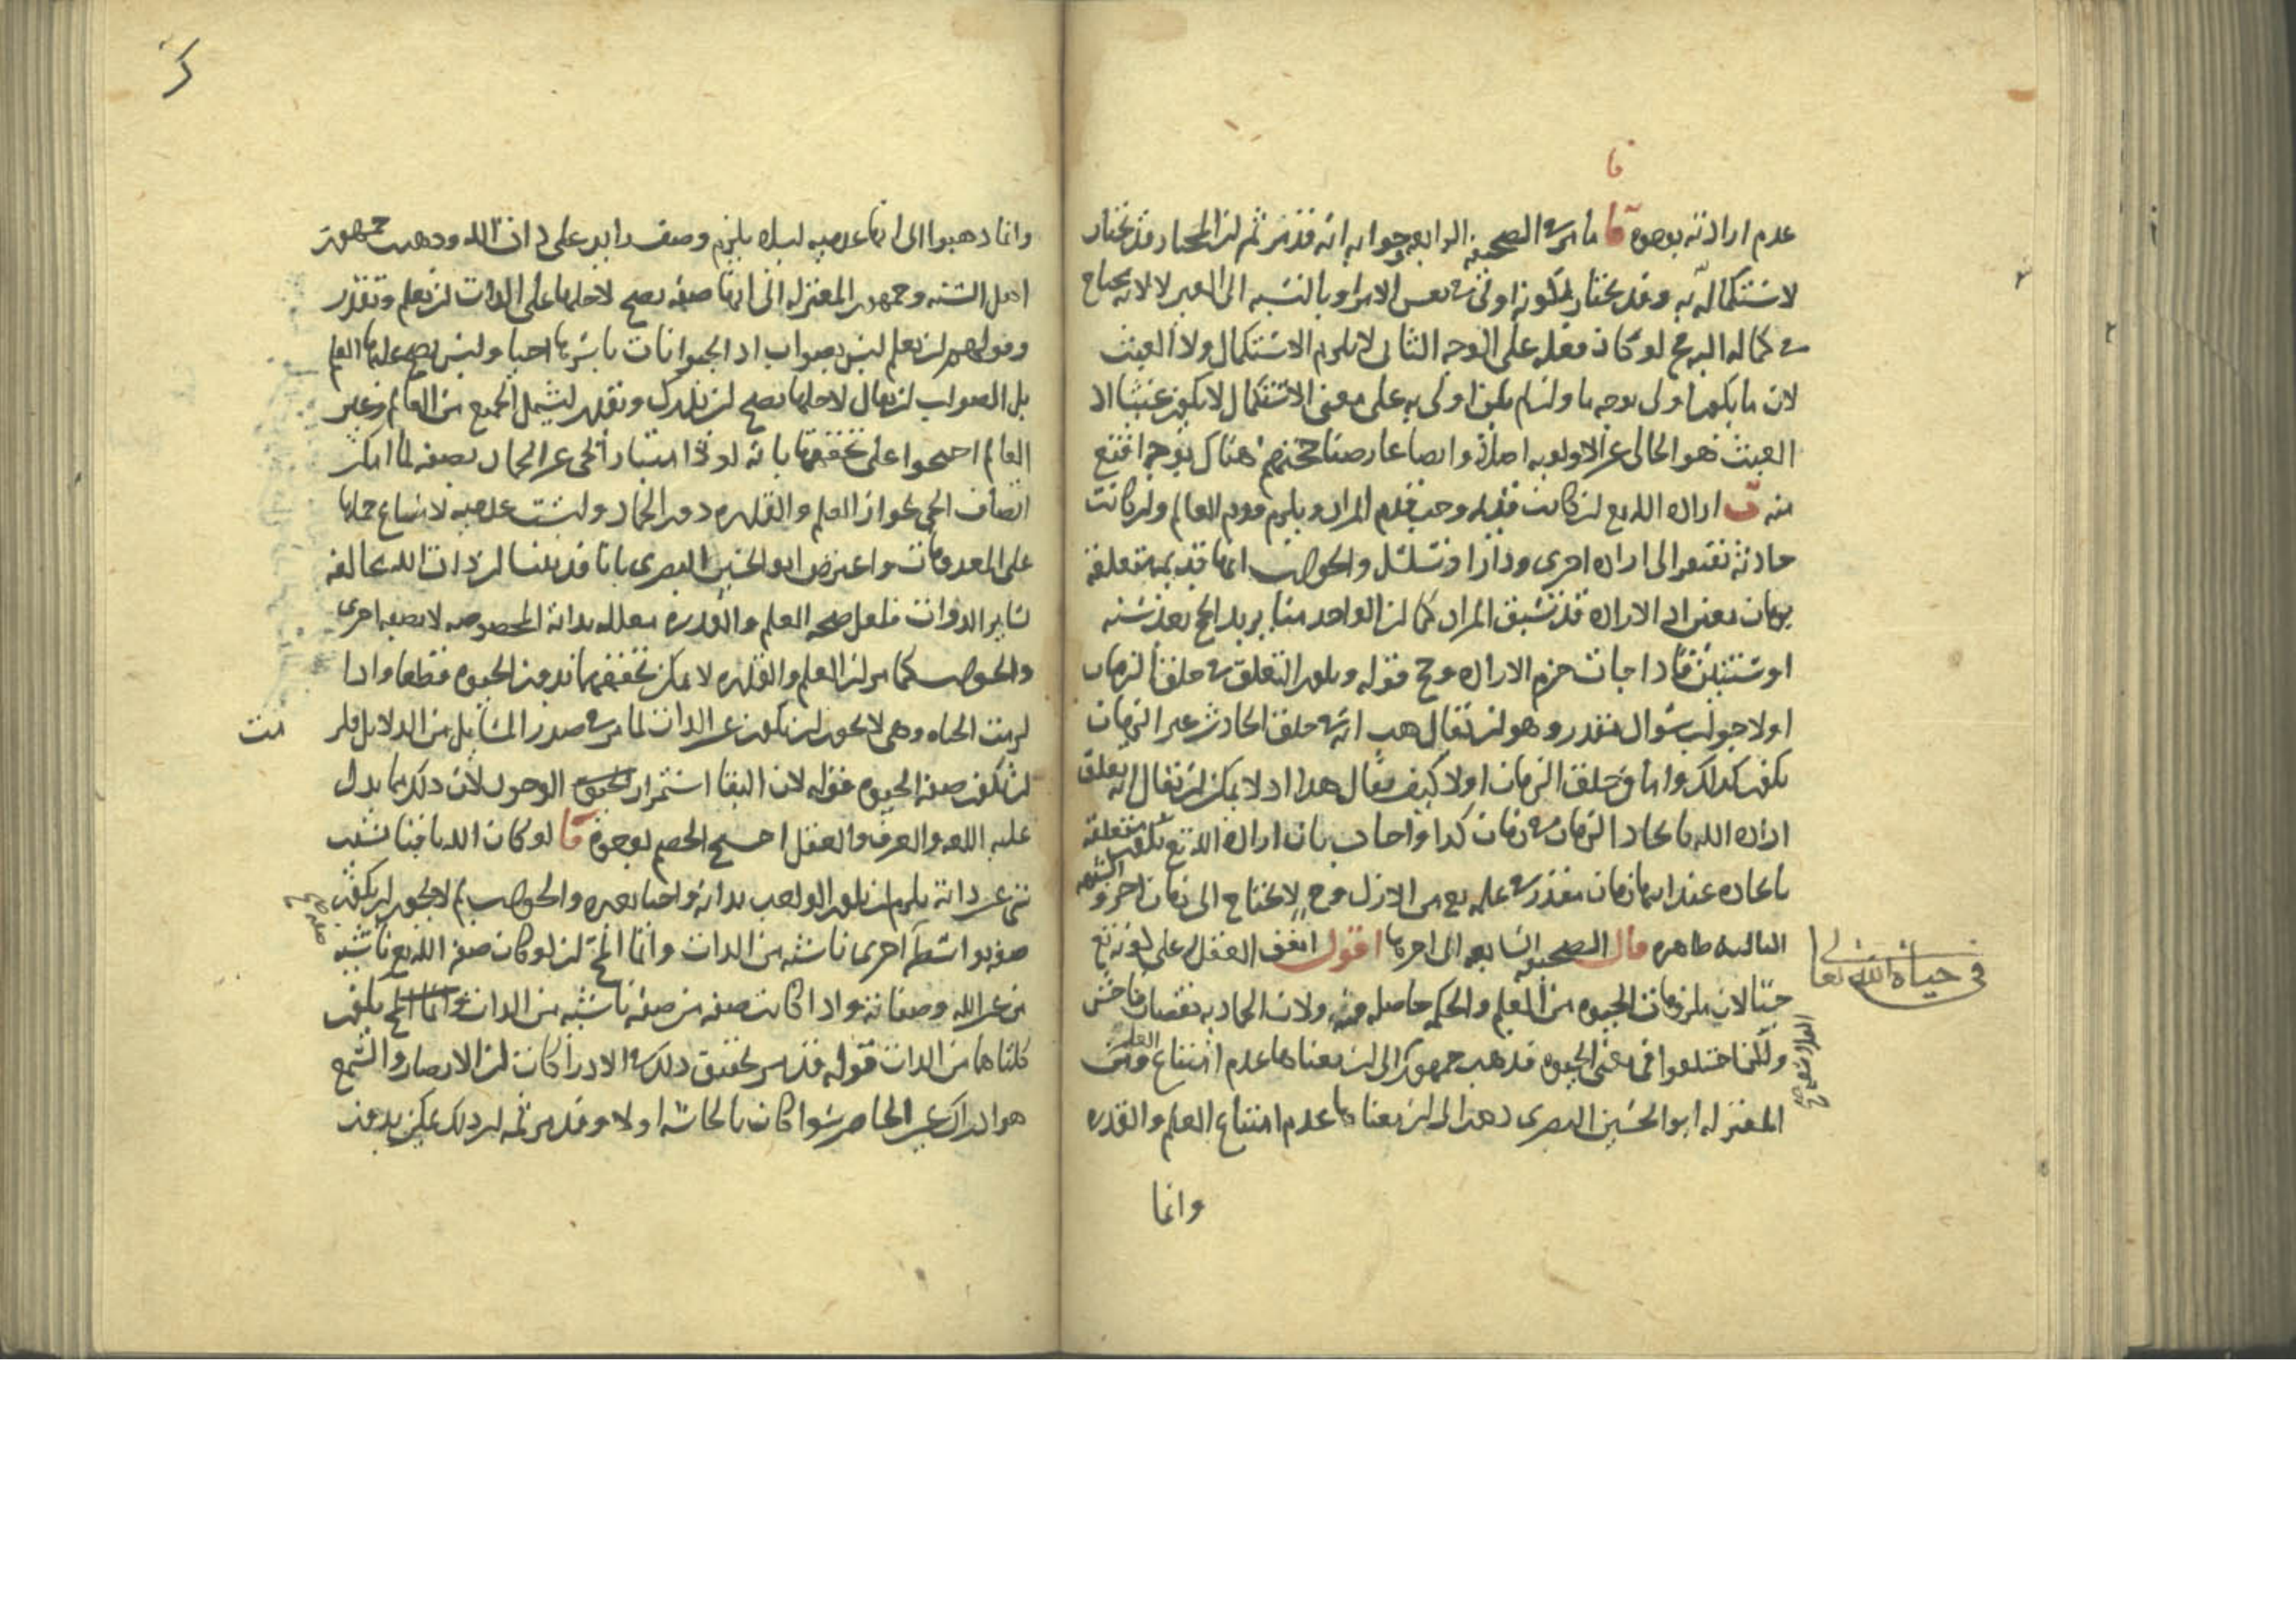 قا
عدم ارادته بوجوه قا ما مر في الصحيفة الرابعة وجوابه انه قد مر ثم ان المختار قد يختار
لاستكماله به وقد يختار لكونه اولى في نفس الامر او بالنسبة الى الغير لا لانه يحتاج
في كماله اليه فح لو كان فعله على الوجه الثاني لا يلزم الاستكمال ولا العبث
لان ما يكون اولى بوجه ما وان لم يكن اولى به على معنى الاستكمال لا يكون عبثا اذ
العبث هو الخالي عن الاولوية اصلا وايضا عارضنا حجتهم هناك بوجه اقنع
منه ب ارادة الله تع ان كانت قديمة وجب قدم المراد ويلزم قدم العالم وان كانت
حادثة تفتقر الى ارادة اخرى ودار او تسلسل والجواب انها قديمة متعلقة
بزمان معين اذ الارادة قد تسبق المراد كما ان الواحد منا يريد الحج بعد سنة
او سنتين فاذا جاءت جزم الارادة وح قوله ويكون التعلق في خلق الزمان
اولا جواب سوال مقدر وهو ان يقال هب انه في خلق الحادث غير الزمان
يكون كذلك واما في خلق الزمان اولا كيف يقال هذا اذ لا يمكن ان يقال انه تعلق
ارادة الله بايجاد الزمان في زمان كذا واجاب بان ارادة الله تع تكون متعلقة
بايجاده عند انها زمان مقدر في علمه تع من الازل وح لا يحتاج الى زمان اخر والشبهة
الثالثة ظاهرة قال الصحيفة السابعة الى اخرها اقول اتفق العقلا على كونه تع
في حياة الله تعالى
حيا لان ملزومات الحيوة من العلم والحكم حاصلة فيه ولان الجمادية نقصان فاحش
ولكن اختلفوا في معنى الحيوة فذهب جمهور الى ان معناها عدم امتناع العلم ومن
المعتزلة ابو الحسين البصري ذهب الى ان معناها عدم امتناع العلم والقدرة
وانما
وانما ذهبوا الى انها عدمية ليلا يلزم وصف زايد على ذات الله وذهب جمهور
اهل السنة وجمهور المعتزلة الى انها صفة يصح لاجلها على الذات ان يعلم ويقدر
وقولهم ان يعلم ليس بصواب اذ الحيوانات باسرها احيا وليس يصح عليها العلم
بل الصواب ان يقال لاجلها يصح ان يدرك ويقدر ليشمل الجميع من العالم وغير
العالم احتجوا على تحققها بانه لولا امتياز الحي عن الجماد بصفة لما امكن
اتصاف الحي بجواز العلم والقدرة دون الجماد وليست عدمية لامتناع حملها
على المعدومات واعترض ابو الحسين البصري بانا قد بينا ان ذات الله مخالفة
لساير الذوات فلعل صحة العلم والقدرة معللة بذاته المخصوصة لا بصفة اخرى
والجواب كما مر ان العلم والقدرة لا يمكن تحققهما بدون الحيوة فقطعا واذا
ثبت
لزمت الحياة وهي لا يجوز ان تكون عين الذات لما مر في صدر المسايل من الدلايل فلم
ان تكون صفة الحيوة فقوله لان البقا استمرار الوجود لان ذلك مما يدل
عليه اللغة والعرف والعقل احتج الخصم بوجوه قا لو كان الله باقيا بسبب
شي غير ذاته يلزم ان يكون الواجب بذاته واجبا بغيره والجواب لم لا يجوز ان يكون
صفة بواسطة اخرى ناشئة من الذات وانما المح ان لو كان صفة الله تع ناشية
من غير الله وصفاته واذا كانت صفة من صفة ناشئة من الذات يكون
كلتاهما من الذات قوله قد مر تحقيق ذلك في الادراكات ان الابصار والسمع
هو ادراك عين الحاضر سوا كان بالحاسة او لا وقد مر ثمه ان ذلك يمكن بدون